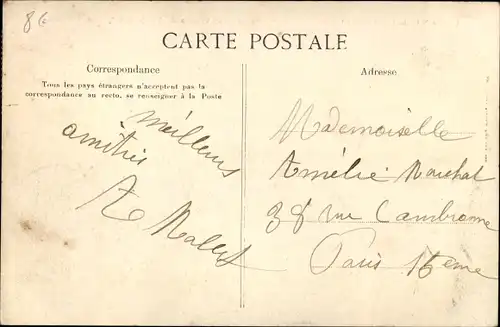 8€
CARTE POSTALE
Correspondance
Tous les pays étrangers n'acceptent pas la
correspondance au recto, se renseigner à la Poste
meilleurs
amitiés
Adresse
Mademoiselle
Amélie Marchal
38 rue Cambronne
Paris 15eme